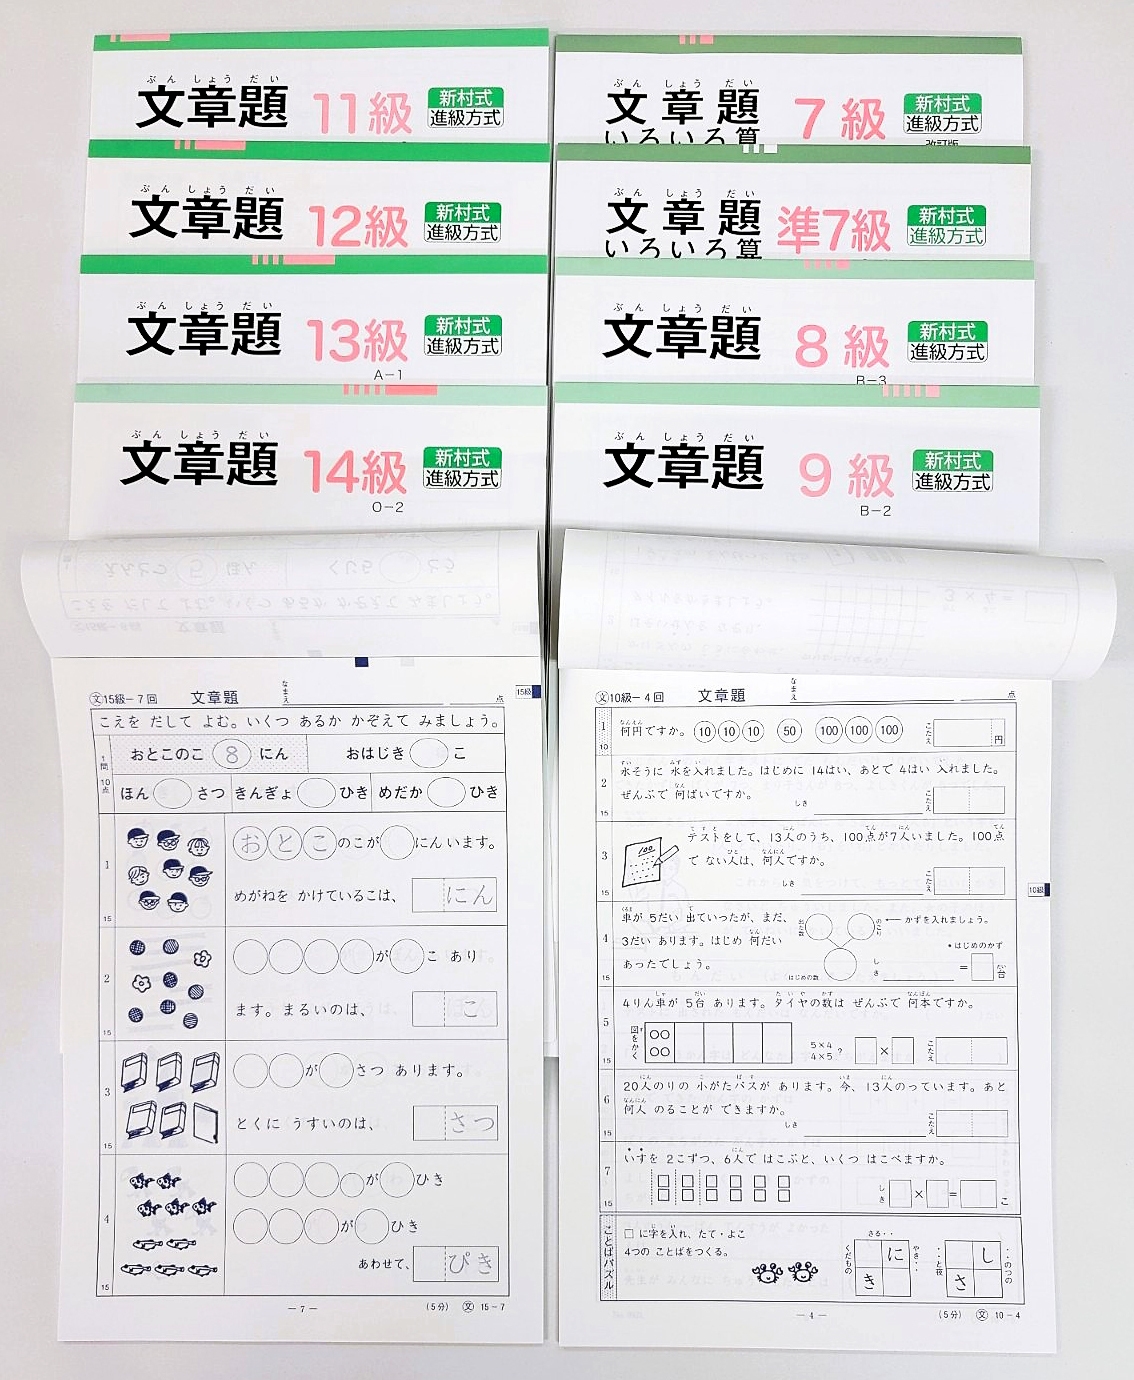 ぶん しょう だい
文章題 11級 新村式 進級方式
ぶん しょう だい
文章題 12級 新村式 進級方式
ぶん しょう だい
文章題 13級 新村式 進級方式
A−1
ぶん しょう だい
文章題 14級 新村式 進級方式
0−2
ぶん しょう だい
文章題 7級 新村式 進級方式
いろいろ算 改訂版
ぶん しょう だい
文章題 準7級 新村式 進級方式
いろいろ算
ぶん しょう だい
文章題 8級 新村式 進級方式
B−3
ぶん しょう だい
文章題 9級 新村式 進級方式
B−2
文15級−7回 文章題 なまえ 点
15級
こえを だして よむ。いくつ あるか かぞえて みましょう。
1問10点
おとこのこ 8 にん おはじき こ
ほん さつ きんぎょ ひき めだか ひき
1
おとこのこが にんいます。
めがねを かけているこは、 にん
15
2
が こ あり
ます。まるいのは、 こ
15
3
が さつ あります。
とくに うすいのは、 さつ
15
4
が ひき
が ひき
あわせて、 ぴき
15
−7− (5分) 文 15−7
文10級−4回 文章題 なまえ 点
1 何円ですか。 10 10 10 50 100 100 100 こたえ 円
なんえん
10
2 水そうに 水を入れました。はじめに 14はい、あとで 4はい 入れました。
ぜんぶで 何ばいですか。 しき こたえ
15
3 テストをして、13人のうち、100点が7人いました。100点
で ない人は、何人ですか。
100
しき こたえ
15
10級
4 車が 5だい 出ていったが、まだ、
3だい あります。はじめ 何だい
あったでしょう。
出た数 のこり ← かずを入れましょう。
・はじめのかず
はじめの数 しき = 台
15
5 4りん車が 5台 あります。タイヤの数は ぜんぶで 何本ですか。
図をかく 5×4 4×5 ? × こたえ
15
6 20人のりの 小がたバスが あります。今、13人のっています。あと
何人 のることが できますか。
しき こたえ
15
7 いすを 2こずつ、6人で はこぶと、いくつ はこべますか。
しき × = こ
15
ことばパズル
□ に字を入れ、たて・よこ
4つの ことばをつくる。
さる・・ くだもの に き やき・・
・・と夜 し さ ・・のつの
−4− (5分) 文 10−4